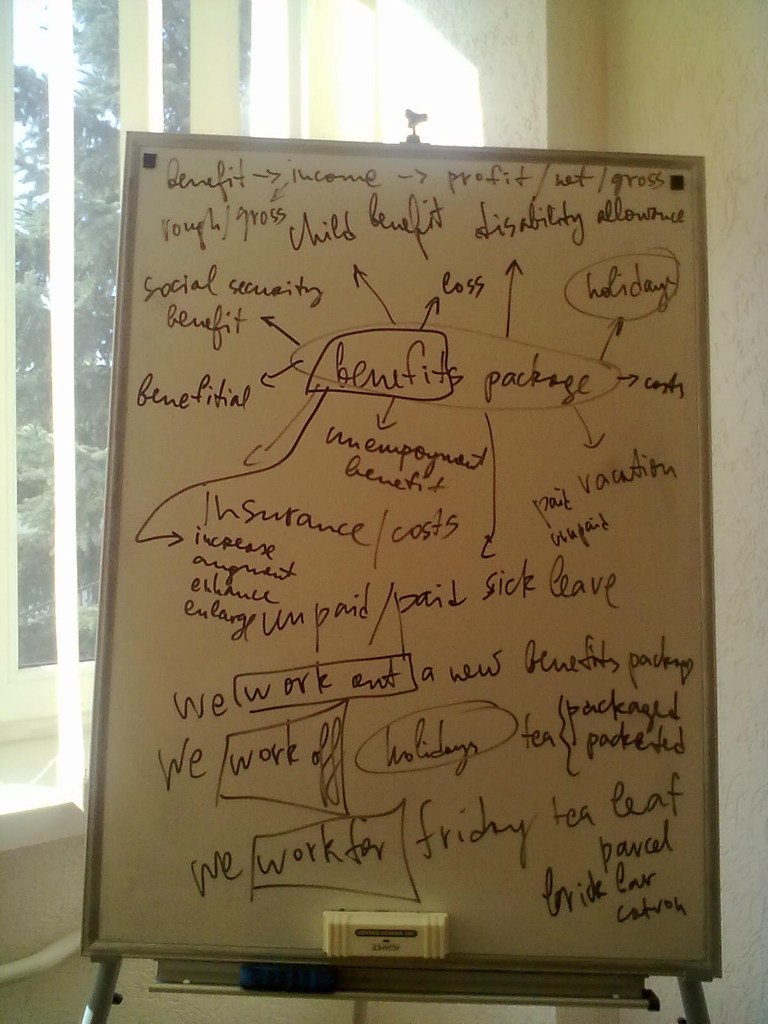 benefit → income → profit / net / gross
rough / gross
child benefit
disability allowance
social security
benefit
loss
holidays
benefits package
→ costs
benefitial
unempoyment
benefit
paid vacation
unpaid
Insurance / costs
increase
augment
enhance
enlarge
unpaid / paid sick leave
we work out a new benefits package
we work off holidays
tea { packaged
packeted
we work for friday
tea leaf
parcel
brick